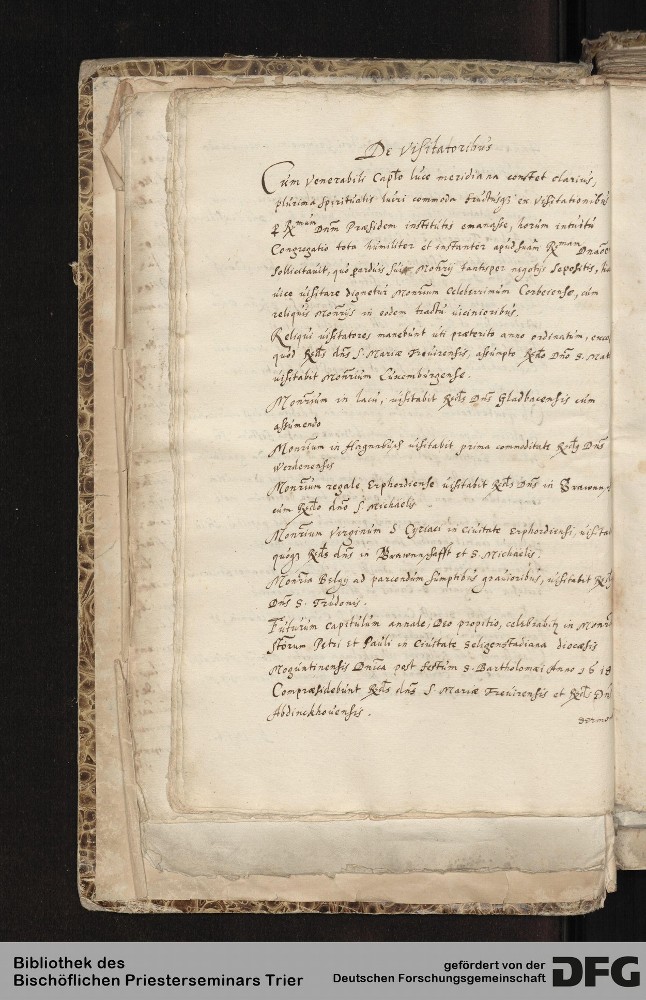 De Visitatoribus
Cum Venerabili Caplo luce meridiana constet clarius,
plurima spiritualis lucri commoda fructusq; ex visitationibus
Rmum Dnm Præsidem institutis emanasse, horum intuitu
Congregatio tota humiliter et instanter apud suam Rmam
sollicitauit, quo Monrij tantisper negotijs sepositis, hac
uice uisitare dignetur Monrium celeberrimum Corbeiense, cum
reliquis Monrijs in eodem tractu uicinioribus.
Reliqui uisitatores manebunt uti præterito anno ordinatum,
quod Rdus dns S. Mariæ Treuirensis, assumpto Rdo Dno S. Mat
uisitabit Monrium Luxemburgense.
Monrium in lacu, uisitabit Rdus Dns Gladbacensis cum
assumendo
Monrium in Hagnabusch uisitabit prima commoditate Rdus Dns
Werdenensis
Monrium regale Erphordiense uisitabit Rdus Dns in
cum Rdo dno S. Michaelis.
Monrium Virginum S. Cyriaci in ciuitate Erphordiensi, uisitab
quoq; Rdus dns in Brawnnschafft et S. Michaelis.
Monria Belgij ad parcendum sumptibus grauioribus, uisitabit Rdus
Dns S. Trudonis.
Futurum capitulum annale, Deo propitio, celebrabitur in Monrio
Storum Petri et Pauli in Ciuitate Seligenstadiana diocæsis
Moguntinensis Dnica post festum S. Bartholomæi Anno 1618
Compræsidebunt Rdus dns S. Mariæ Treuirensis et Rdus Dns
Abdinckhouensis.
Bibliothek des
Bischöflichen Priesterseminars Trier
gefördert von der
Deutschen Forschungsgemeinschaft
DFG